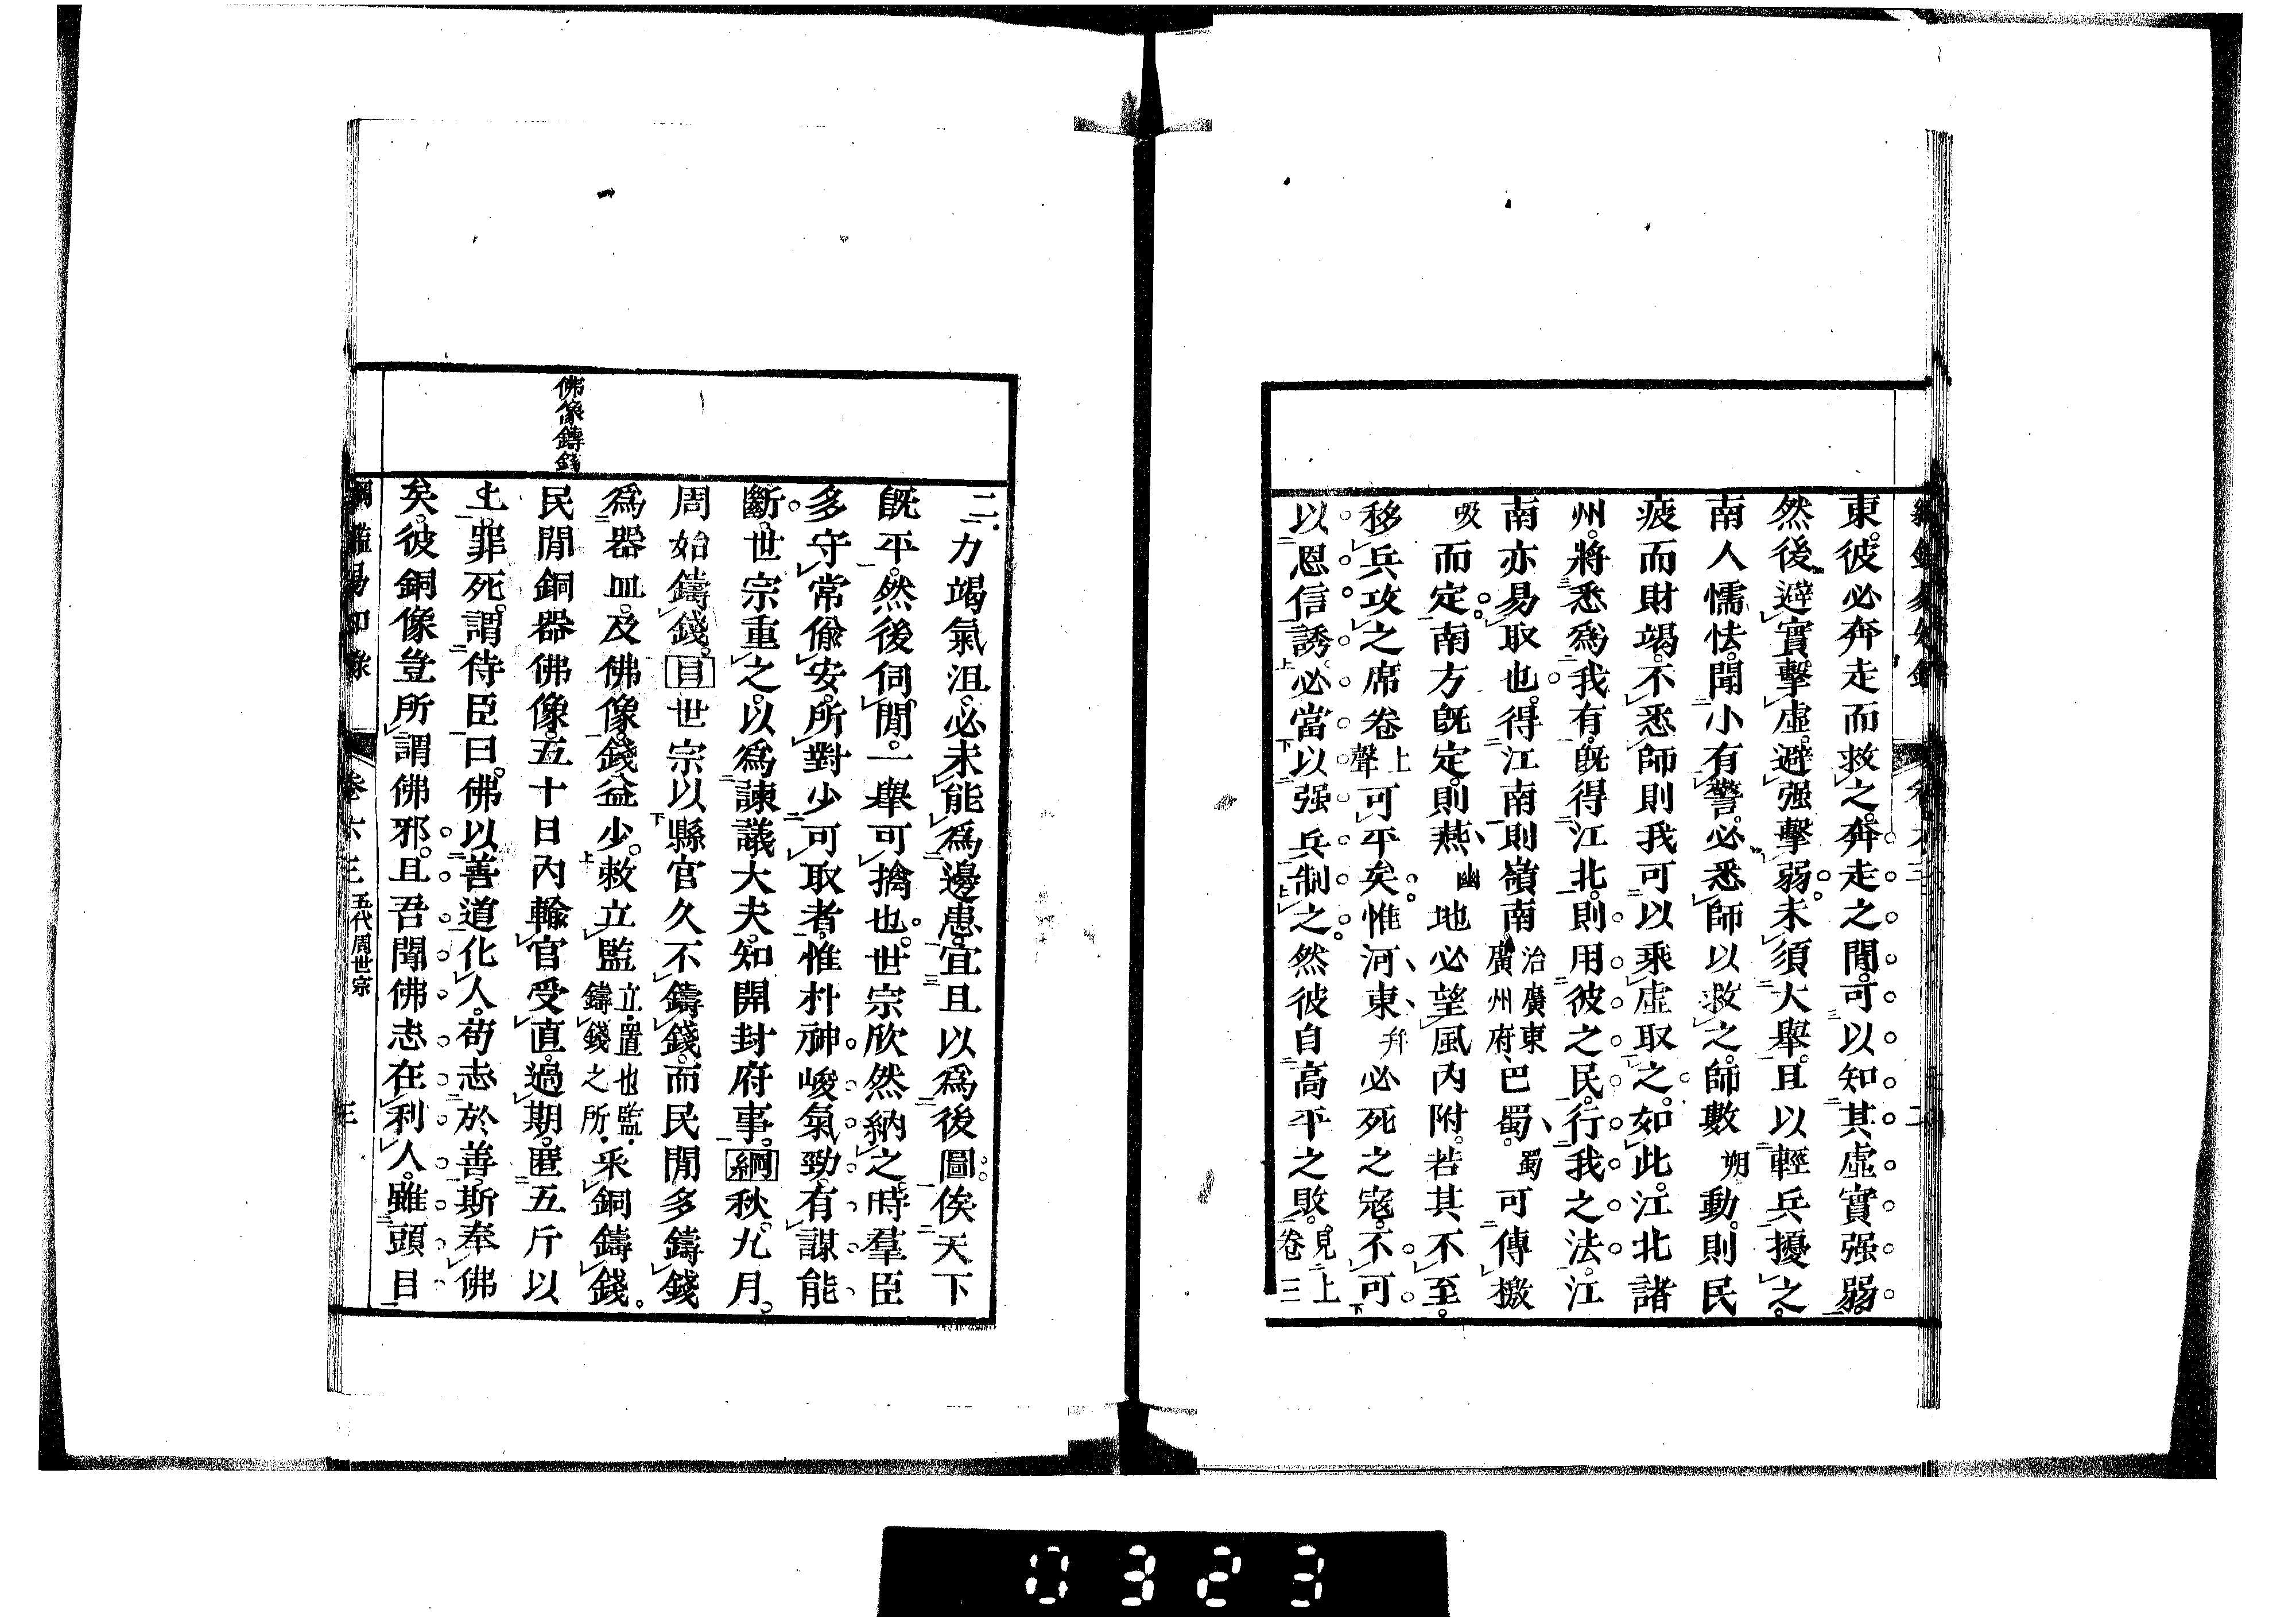 東。彼必奔走而救之。奔走之閒。可以知其虛實强弱。
然後避實擊虛。避强擊弱。未須大舉。且以輕兵擾之。
南人懦怯。聞小有警。必悉師以救之。師數朔動。則民
疲而財竭。不悉師則我可以乘虛取之。如此。江北諸
州。將悉爲我有。旣得江北。則用彼之民。行我之法。江
南亦易取也。得江南則嶺南治廣東廣州府、巴蜀。蜀可傳檄
吸而定。南方旣定。則燕、幽地必望風內附。若其不至。
移兵攻之。席卷上聲可平矣。惟河東幷必死之寇。不可
以恩信誘。必當以强兵制之。然彼自高平之敗。見上卷三
二。力竭氣沮。必未能爲邊患。宜且以爲後圖。俟天下
旣平。然後伺閒。一舉可擒也。世宗欣然納之。時羣臣
多守常偸安。所對少可取者。惟朴神峻氣勁。有謀能
斷。世宗重之。以爲諫議大夫。知開封府事。綱秋。九月。
周始鑄錢。目世宗以縣官久不鑄錢。而民閒多鑄錢
爲器皿。及佛像。錢益少。敕立監立。置也。監。鑄錢之所。采銅鑄錢。
民閒銅器佛像。五十日內輸官受直。過期。匿五斤以
上。罪死。謂侍臣曰。佛以善道化人。苟志於善。斯奉佛
矣。彼銅像豈所謂佛邪。且吾聞佛志在利人。雖頭目
佛像鑄錢
綱鑑易知錄 卷六三 五代周世宗 三
0323